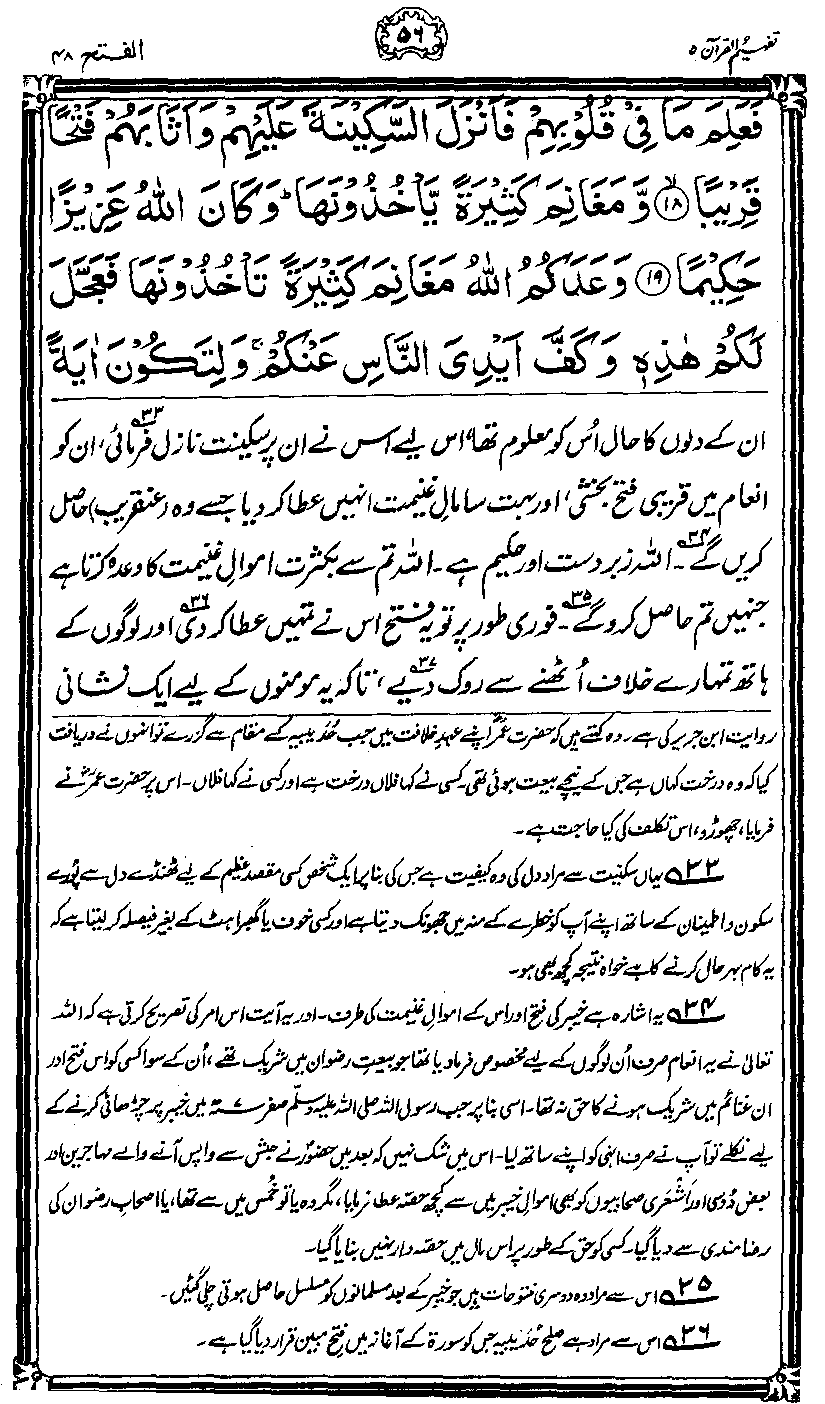 تفہیم القرآن ۵
۵۶
الفتح ۴۸
فَعَلِمَ مَا فِىْ قُلُوْبِهِمْ فَاَنْزَلَ السَّكِيْنَةَ عَلَيْهِمْ وَاَثَابَهُمْ فَتْحًا
قَرِيْبًا ۙ‏﴿۱۸﴾ وَّمَغَانِمَ كَثِيْرَةً يَّاْخُذُوْنَهَا ؕ وَكَانَ اللّٰهُ عَزِيْزًا
حَكِيْمًا ﴿۱۹﴾ وَعَدَكُمُ اللّٰهُ مَغَانِمَ كَثِيْرَةً تَاْخُذُوْنَهَا فَعَجَّلَ
لَكُمْ هٰذِهٖ وَكَفَّ اَيْدِىَ النَّاسِ عَنْكُمْ ۚ وَلِتَكُوْنَ اٰيَةً
ان کے دلوں کا حال اُس کو معلوم تھا، اس لیے اس نے ان پر سکینت نازل فرمائی،۳۳ ان کو
انعام میں قریبی فتح بخشی، اور بہت سا مالِ غنیمت انہیں عطا کر دیا جسے وہ (عنقریب) حاصل
کریں گے۳۴۔ اللہ زبردست اور حکیم ہے۔ اللہ تم سے بکثرت اموالِ غنیمت کا وعدہ کرتا ہے
جنہیں تم حاصل کرو گے۳۵۔ فوری طور پر تو یہ فتح اس نے تمہیں عطا کر دی۳۶ اور لوگوں کے
ہاتھ تمہارے خلاف اُٹھنے سے روک دیے،۳۷ تاکہ یہ مومنوں کے لیے ایک نشانی
روایت ابن جریر کی ہے۔ وہ کہتے ہیں کہ حضرت عمرؓ اپنے عہدِ خلافت میں جب حُدَیبیہ کے مقام سے گزرے تو انہوں نے دریافت
کیا کہ وہ درخت کہاں ہے جس کے نیچے بیعت ہوئی تھی۔ کسی نے کہا فلاں درخت ہے اور کسی نے کہا فلاں۔ اس پر حضرت عمرؓ نے
فرمایا، چھوڑو، اس تکلف کی کیا حاجت ہے۔
۳۳ یہاں سکینت سے مراد دل کی وہ کیفیت ہے جس کی بنا پر ایک شخص کسی مقصدِ عظیم کے لیے ٹھنڈے دل سے پورے
سکون و اطمینان کے ساتھ اپنے آپ کو خطرے کے منہ میں جھونک دیتا ہے اور کسی خوف یا گھبراہٹ کے بغیر فیصلہ کر لیتا ہے کہ
یہ کام بہرحال کرنے کا ہے خواہ نتیجہ کچھ بھی ہو۔
۳۴ یہ اشارہ ہے خیبر کی فتح اور اس کے اموالِ غنیمت کی طرف۔ اور یہ آیت اس امر کی تصریح کرتی ہے کہ اللہ
تعالیٰ نے یہ انعام صرف اُن لوگوں کے لیے مخصوص فرما دیا تھا جو بیعتِ رضوان میں شریک تھے، اُن کے سوا کسی کو اس فتح اور
ان غنائم میں شریک ہونے کا حق نہ تھا۔ اسی بنا پر جب رسول اللہ صلی اللہ علیہ وسلم صفر ۷ھ میں خیبر پر چڑھائی کرنے کے
لیے نکلے تو آپ نے صرف انہی کو اپنے ساتھ لیا۔ اس میں شک نہیں کہ بعد میں حضورؐ نے حبش سے واپس آنے والے مہاجرین اور
بعض دَوسی اور اَشعَری صحابیوں کو بھی اموالِ خیبر میں سے کچھ حصہ عطا فرمایا، مگر وہ یا تو خُمس میں سے تھا، یا اصحابِ رضوان کی
رضامندی سے دیا گیا۔ کسی کو حق کے طور پر اس مال میں حصہ دار نہیں بنایا گیا۔
۳۵ اس سے مراد وہ دوسری فتوحات ہیں جو خیبر کے بعد مسلمانوں کو مسلسل حاصل ہوتی چلی گئیں۔
۳۶ اس سے مراد ہے صلح حُدَیبیہ جس کو سورۃ کے آغاز میں فتحِ مبین قرار دیا گیا ہے۔